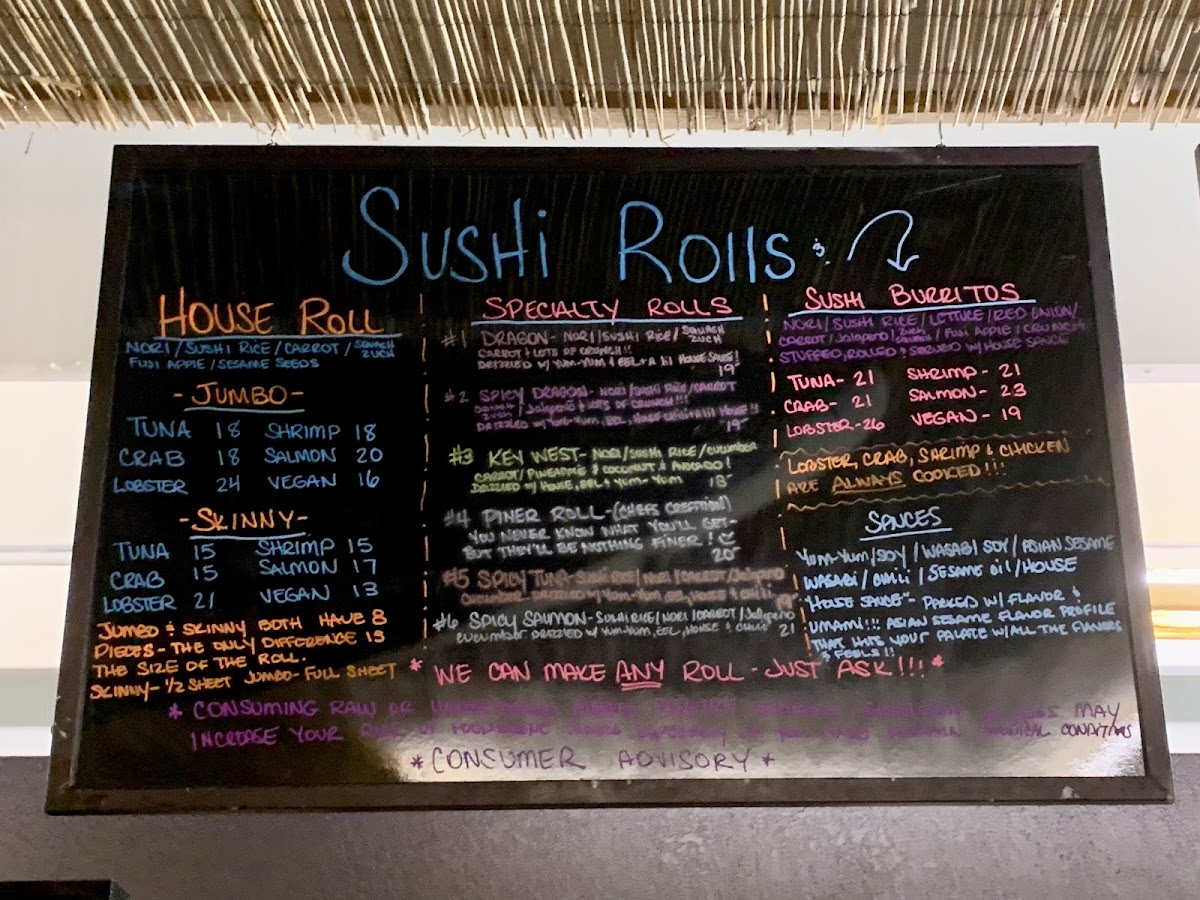 SUSHI ROLLS:
HOUSE ROLL
NORI / SUSHI RICE / CARROT / SQUASH
ZUCH
FUJI APPLE / SESAME SEEDS
- JUMBO -
TUNA 18 SHRIMP 18
CRAB 18 SALMON 20
LOBSTER 24 VEGAN 16
- SKINNY -
TUNA 15 SHRIMP 15
CRAB 15 SALMON 17
LOBSTER 21 VEGAN 13
JUMBO & SKINNY BOTH HAVE 8
PIECES - THE ONLY DIFFERENCE IS
THE SIZE OF THE ROLL.
SKINNY - 1/2 SHEET JUMBO - FULL SHEET
SPECIALTY ROLLS
#1 DRAGON - NORI / SUSHI RICE / SQUASH
ZUCH
CARROT & LOTS OF CRUNCH!!
DRIZZLED W/ YUM-YUM & EEL + A lil HOUSE SAUCE!
19
#2 SPICY DRAGON - NORI / SUSHI RICE / CARROT
ZUCH / Jalapeño & LOTS OF CRUNCH!!!
DRIZZLED W/ YUM-YUM, EEL, HOUSE
19
#3 KEY WEST - NORI / SUSHI RICE / CUCUMBER
CARROT / PINEAPPLE & COCONUT & AVOCADO!
DRIZZLED W/ HOUSE, EEL & YUM-YUM 18
#4 DINER ROLL - (CHEFS CREATION)
YOU NEVER KNOW WHAT YOU'LL GET -
BUT THEY'LL BE NOTHING FINER!
20
#5 SPICY TUNA - SUSHI RICE / NORI / CARROT / Jalapeño
CUCUMBER DRIZZLED W/ YUM-YUM, EEL, HOUSE & CHILI
#6 SPICY SALMON - SUSHI RICE / NORI / CARROT / Jalapeño
CUCUMBER DRIZZLED W/ YUM-YUM, EEL, HOUSE & CHILI 21
SUSHI BURRITOS
NORI / SUSHI RICE / LETTUCE / RED ONION /
CARROT / Jalapeño / ZUCH / FUJI APPLE / CRUNCH
STUFFED, ROLLED & SERVED W/ HOUSE SAUCE
TUNA - 21 SHRIMP - 21
CRAB - 21 SALMON - 23
LOBSTER - 26 VEGAN - 19
LOBSTER, CRAB, SHRIMP & CHICKEN
ARE ALWAYS COOKED!!!
SAUCES
YUM-YUM / SOY / WASABI SOY / ASIAN SESAME
WASABI / CHILI / SESAME OIL / HOUSE
"HOUSE SAUCE" - PACKED W/ FLAVOR &
UMAMI!!! ASIAN SESAME FLAVOR PROFILE
THAT HITS YOUR PALATE W/ ALL THE FLAVORS
& FEELS!!
* WE CAN MAKE ANY ROLL - JUST ASK!!! *
* CONSUMING RAW OR MAY
INCREASE YOUR MEDICAL CONDITIONS
* CONSUMER ADVISORY *